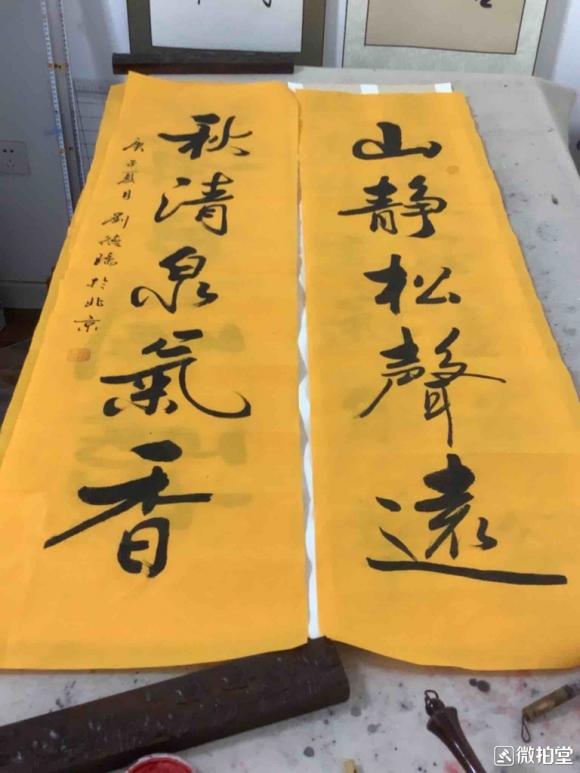 山静松聲遠
秋清泉氣香
庚子夏月劉
於北京
微拍堂